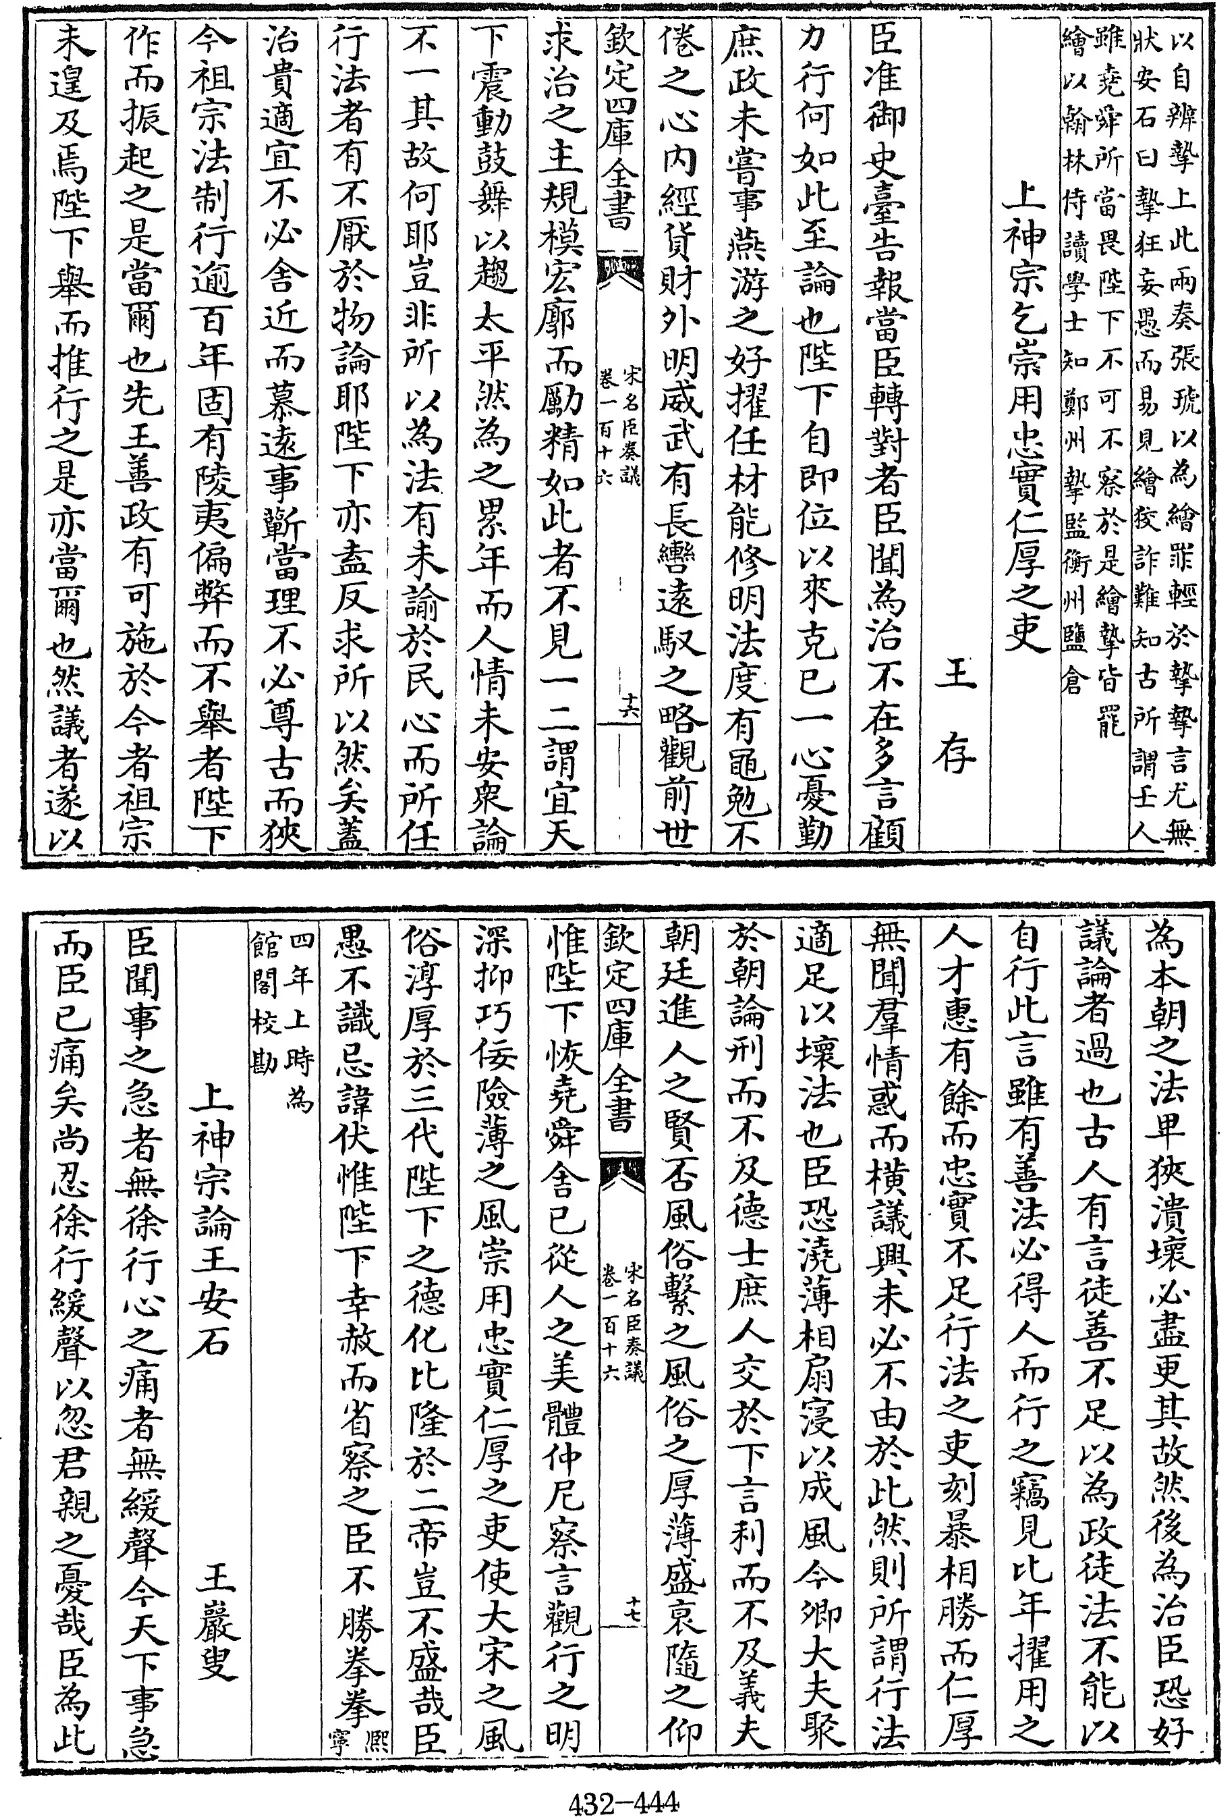 以自辨摯上此兩奏張琥以為繪罪輕於摯摯言尤無
狀安石曰摯狂妄愚而易見繪狡詐難知古所謂壬人
雖堯舜所當畏陛下不可不察於是繪摯皆罷
繪以翰林侍讀學士知鄭州摯監衡州鹽倉
上神宗乞崇用忠實仁厚之吏
王存
臣准御史臺告報當臣轉對者臣聞為治不在多言顧
力行何如此至論也陛下自即位以來克已一心憂勤
庶政未嘗事燕游之好擢任材能修明法度有黽勉不
倦之心内經貨財外明威武有長轡遠馭之略觀前世
欽定四庫全書
宋名臣奏議
卷一百十六
十六
求治之主規模宏廓而勵精如此者不見一二謂宜天
下震動鼓舞以趨太平然為之累年而人情未安衆論
不一其故何耶豈非所以為法有未諭於民心而所任
行法者有不厭於物論耶陛下亦盍反求所以然矣蓋
治貴適宜不必舍近而慕遠事蘄當理不必尊古而狹
今祖宗法制行逾百年固有陵夷偏弊而不舉者陛下
作而振起之是當爾也先王善政有可施於今者祖宗
未遑及焉陛下舉而推行之是亦當爾也然議者遂以
為本朝之法卑狹潰壞必盡更其故然後為治臣恐好
議論者過也古人有言徒善不足以為政徒法不能以
自行此言雖有善法必得人而行之竊見比年擢用之
人才惠有餘而忠實不足行法之吏刻暴相勝而仁厚
無聞羣情惑而橫議興未必不由於此然則所謂行法
適足以壞法也臣恐澆薄相扇寖以成風今卿大夫聚
於朝論刑而不及德士庶人交於下言利而不及義夫
朝廷進人之賢否風俗繫之風俗之厚薄盛衰隨之仰
欽定四庫全書
宋名臣奏議
卷一百十六
十七
惟陛下恢堯舜舍已從人之美體仲尼察言觀行之明
深抑巧佞險薄之風崇用忠實仁厚之吏使大宋之風
俗淳厚於三代陛下之德化比隆於二帝豈不盛哉臣
愚不識忌諱伏惟陛下幸赦而省察之臣不勝拳拳熙寧
四年上時為
館閣校勘
上神宗論王安石
王巖叟
臣聞事之急者無徐行心之痛者無緩聲今天下事急
而臣已痛矣尚忍徐行緩聲以忽君親之憂哉臣為此
432-444